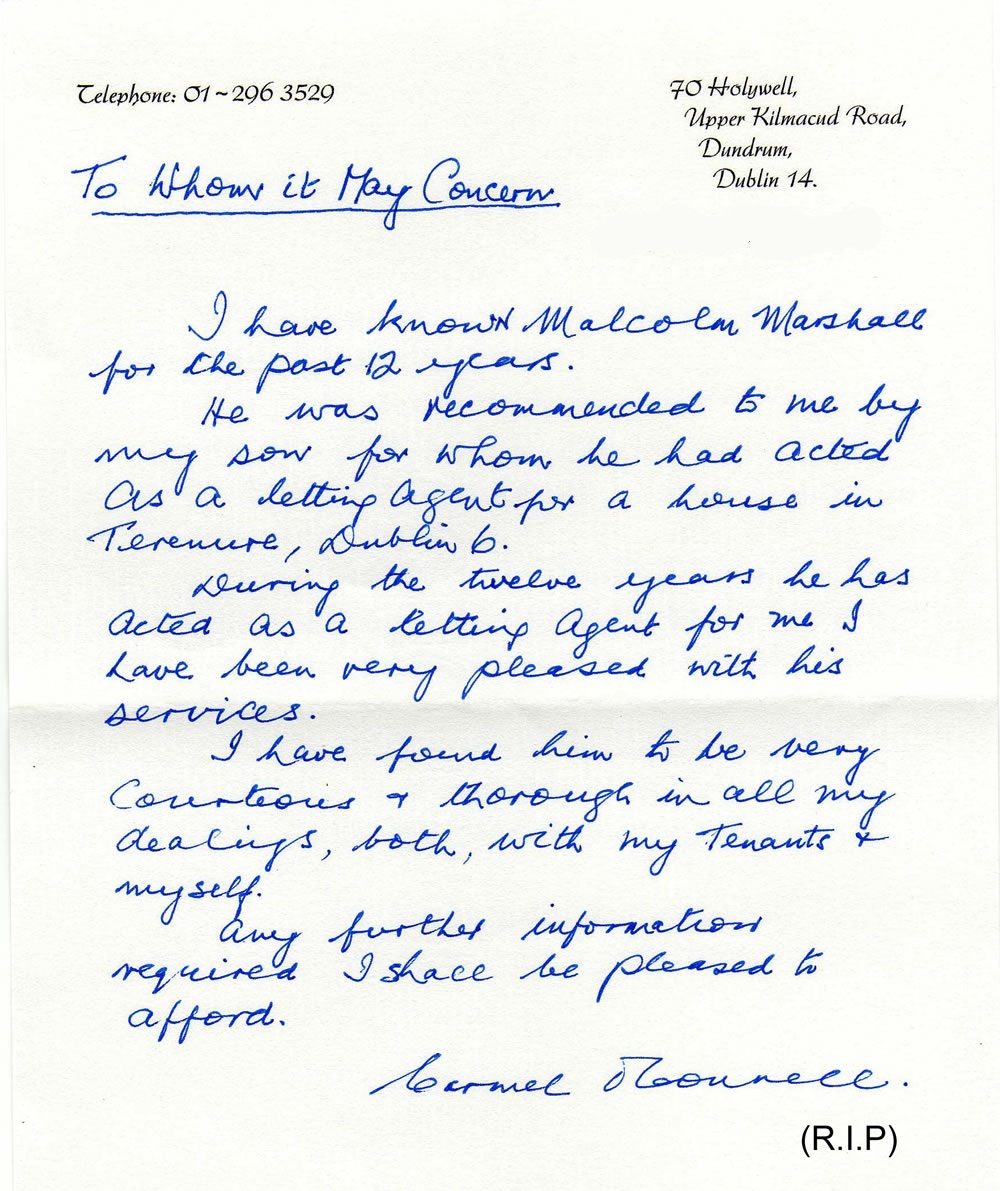 Telephone: 01~296 3529
70 Holywell,
Upper Kilmacud Road,
Dundrum,
Dublin 14.
To Whom it May Concern
I have known Malcolm Marshall
for the past 12 years.
He was recommended to me by
my son for whom he had acted
as a letting Agent for a house in
Terenure, Dublin 6.
During the twelve years he has
acted as a letting Agent for me I
have been very pleased with his
services.
I have found him to be very
Courteous & thorough in all my
dealings, both, with my Tenants &
myself.
Any further information
required I shall be pleased to
afford.
Carmel O'Connell.
(R.I.P)